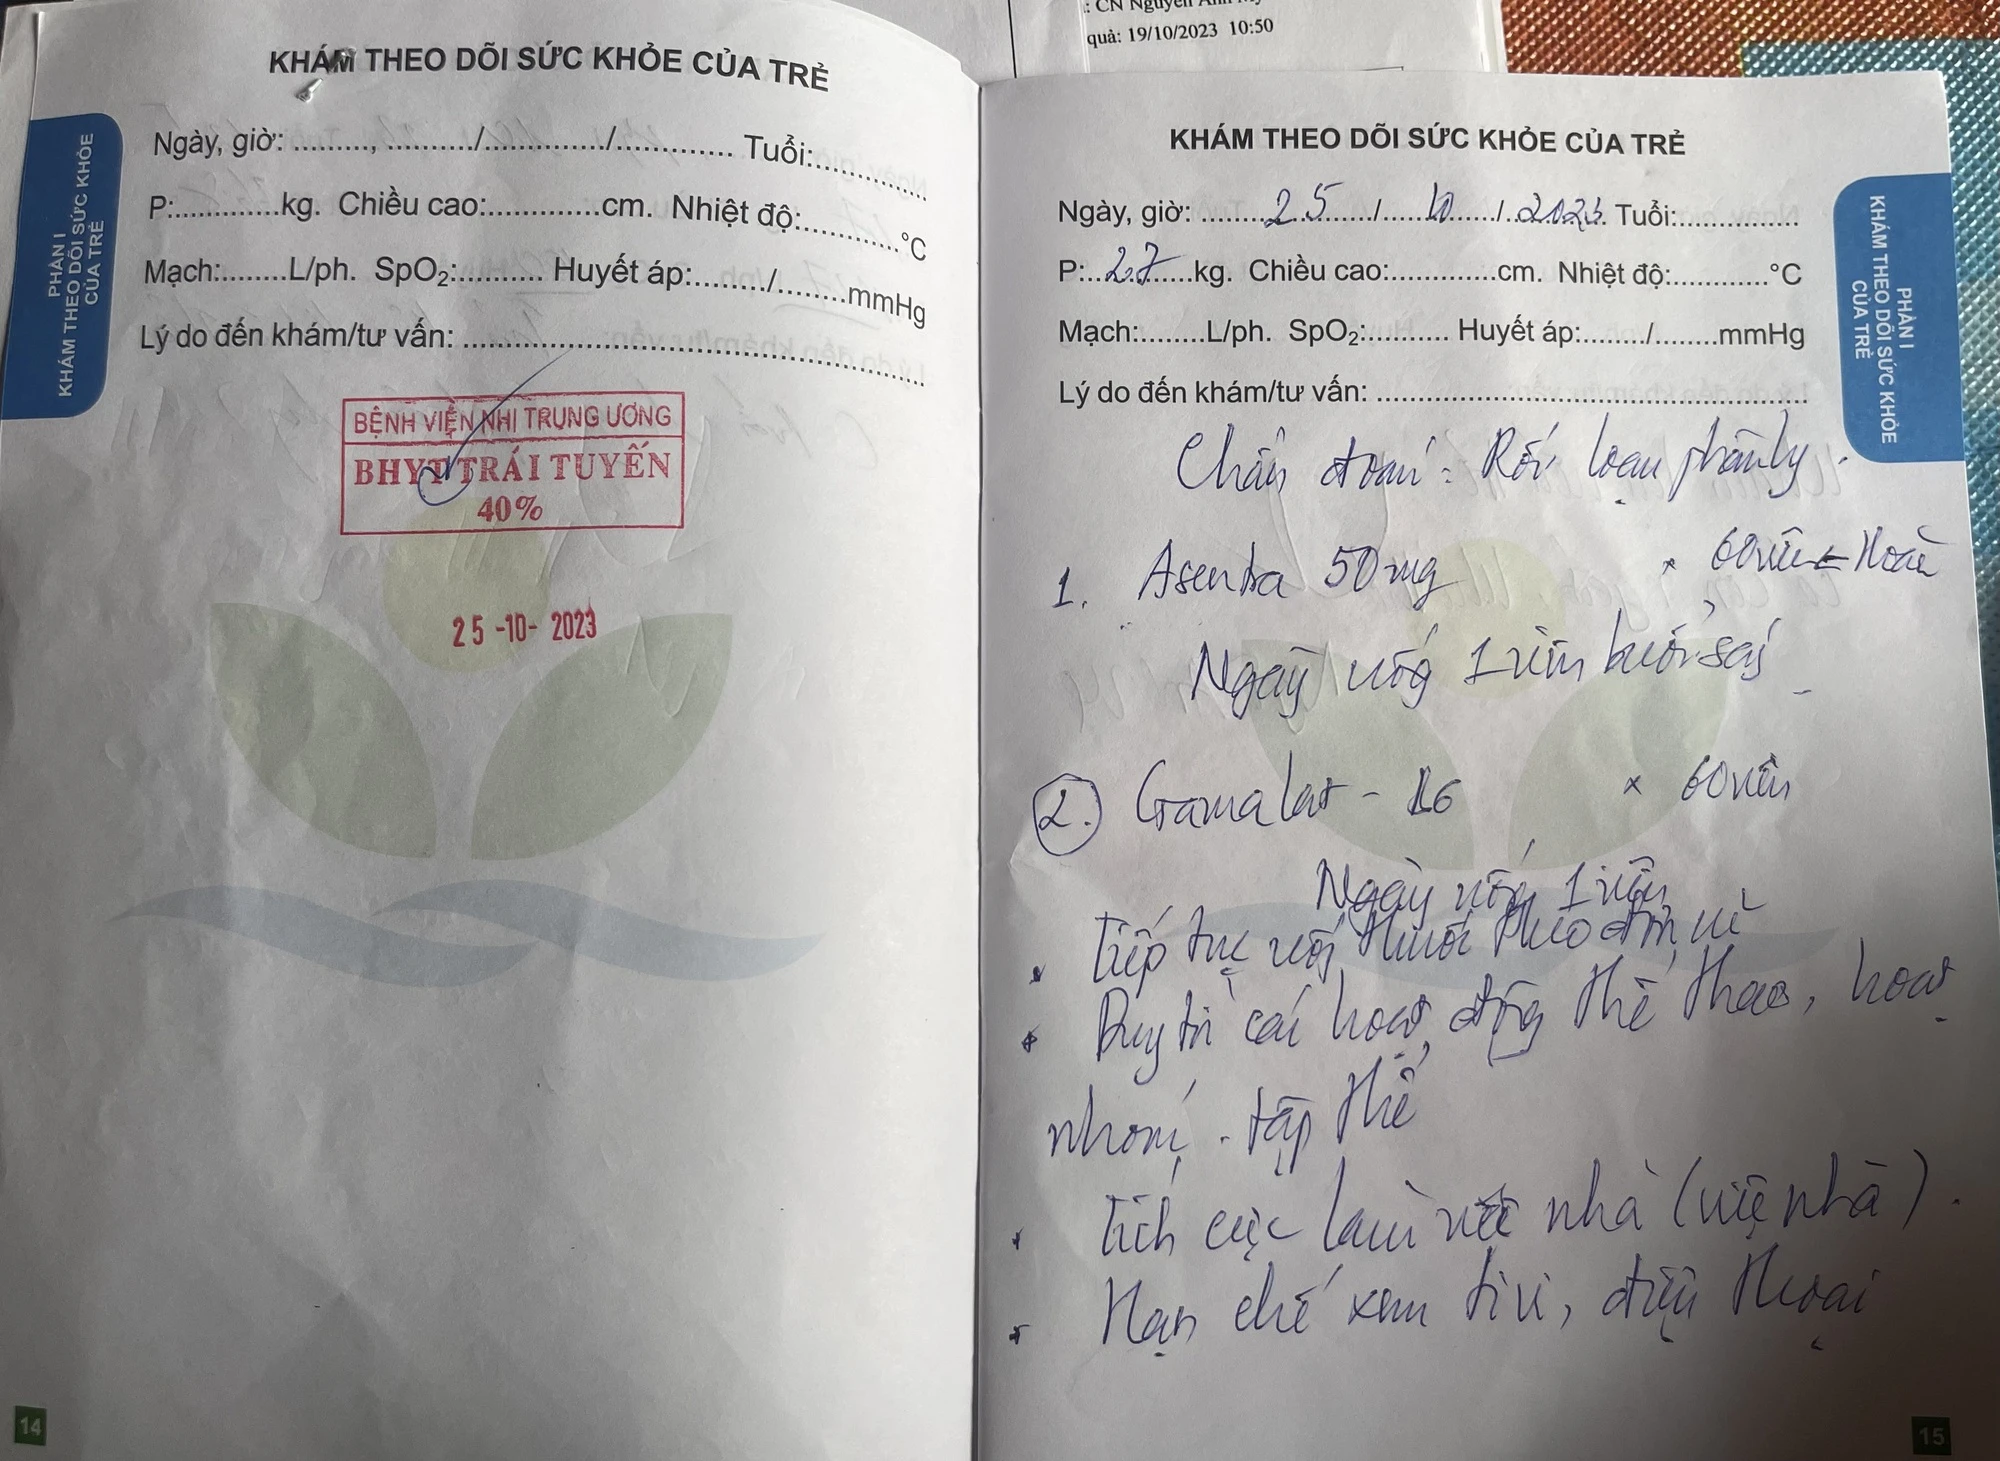 : CN Nguyễn Anh
quả: 19/10/2023 10:50
KHÁM THEO DÕI SỨC KHỎE CỦA TRẺ
PHẦN I
KHÁM THEO DÕI SỨC KHỎE
CỦA TRẺ
Ngày, giờ: ........., ........../............../............. Tuổi:.............
P:............kg. Chiều cao:.............cm. Nhiệt độ:............°C
Mạch:.......L/ph. SpO₂:.......... Huyết áp:......../........mmHg
Lý do đến khám/tư vấn: ......................................................
BỆNH VIỆN NHI TRUNG ƯƠNG
BHYT TRÁI TUYẾN
40%
25 -10- 2023
14
KHÁM THEO DÕI SỨC KHỎE CỦA TRẺ
Ngày, giờ: ........25....../.....10....../..2023. Tuổi:..............
P:..27.....kg. Chiều cao:.............cm. Nhiệt độ:............°C
Mạch:........L/ph. SpO₂:.......... Huyết áp:......../........mmHg
Lý do đến khám/tư vấn: ......................................................
PHẦN I
KHÁM THEO DÕI SỨC KHỎE
CỦA TRẺ
Chẩn đoán: Rối loạn phân ly.
1. Asentra 50mg × 60 viên
Ngày uống 1 viên buổi sáng
2. Gamalat - B6 × 60 viên
Ngày uống 1 viên
Tiếp tục uống thuốc theo đơn
Duy trì các hoạt động thể thao, hoạt
nhóm, tập thể
Tích cực làm việc nhà (việc nhà).
Hạn chế xem tivi, điện thoại
15